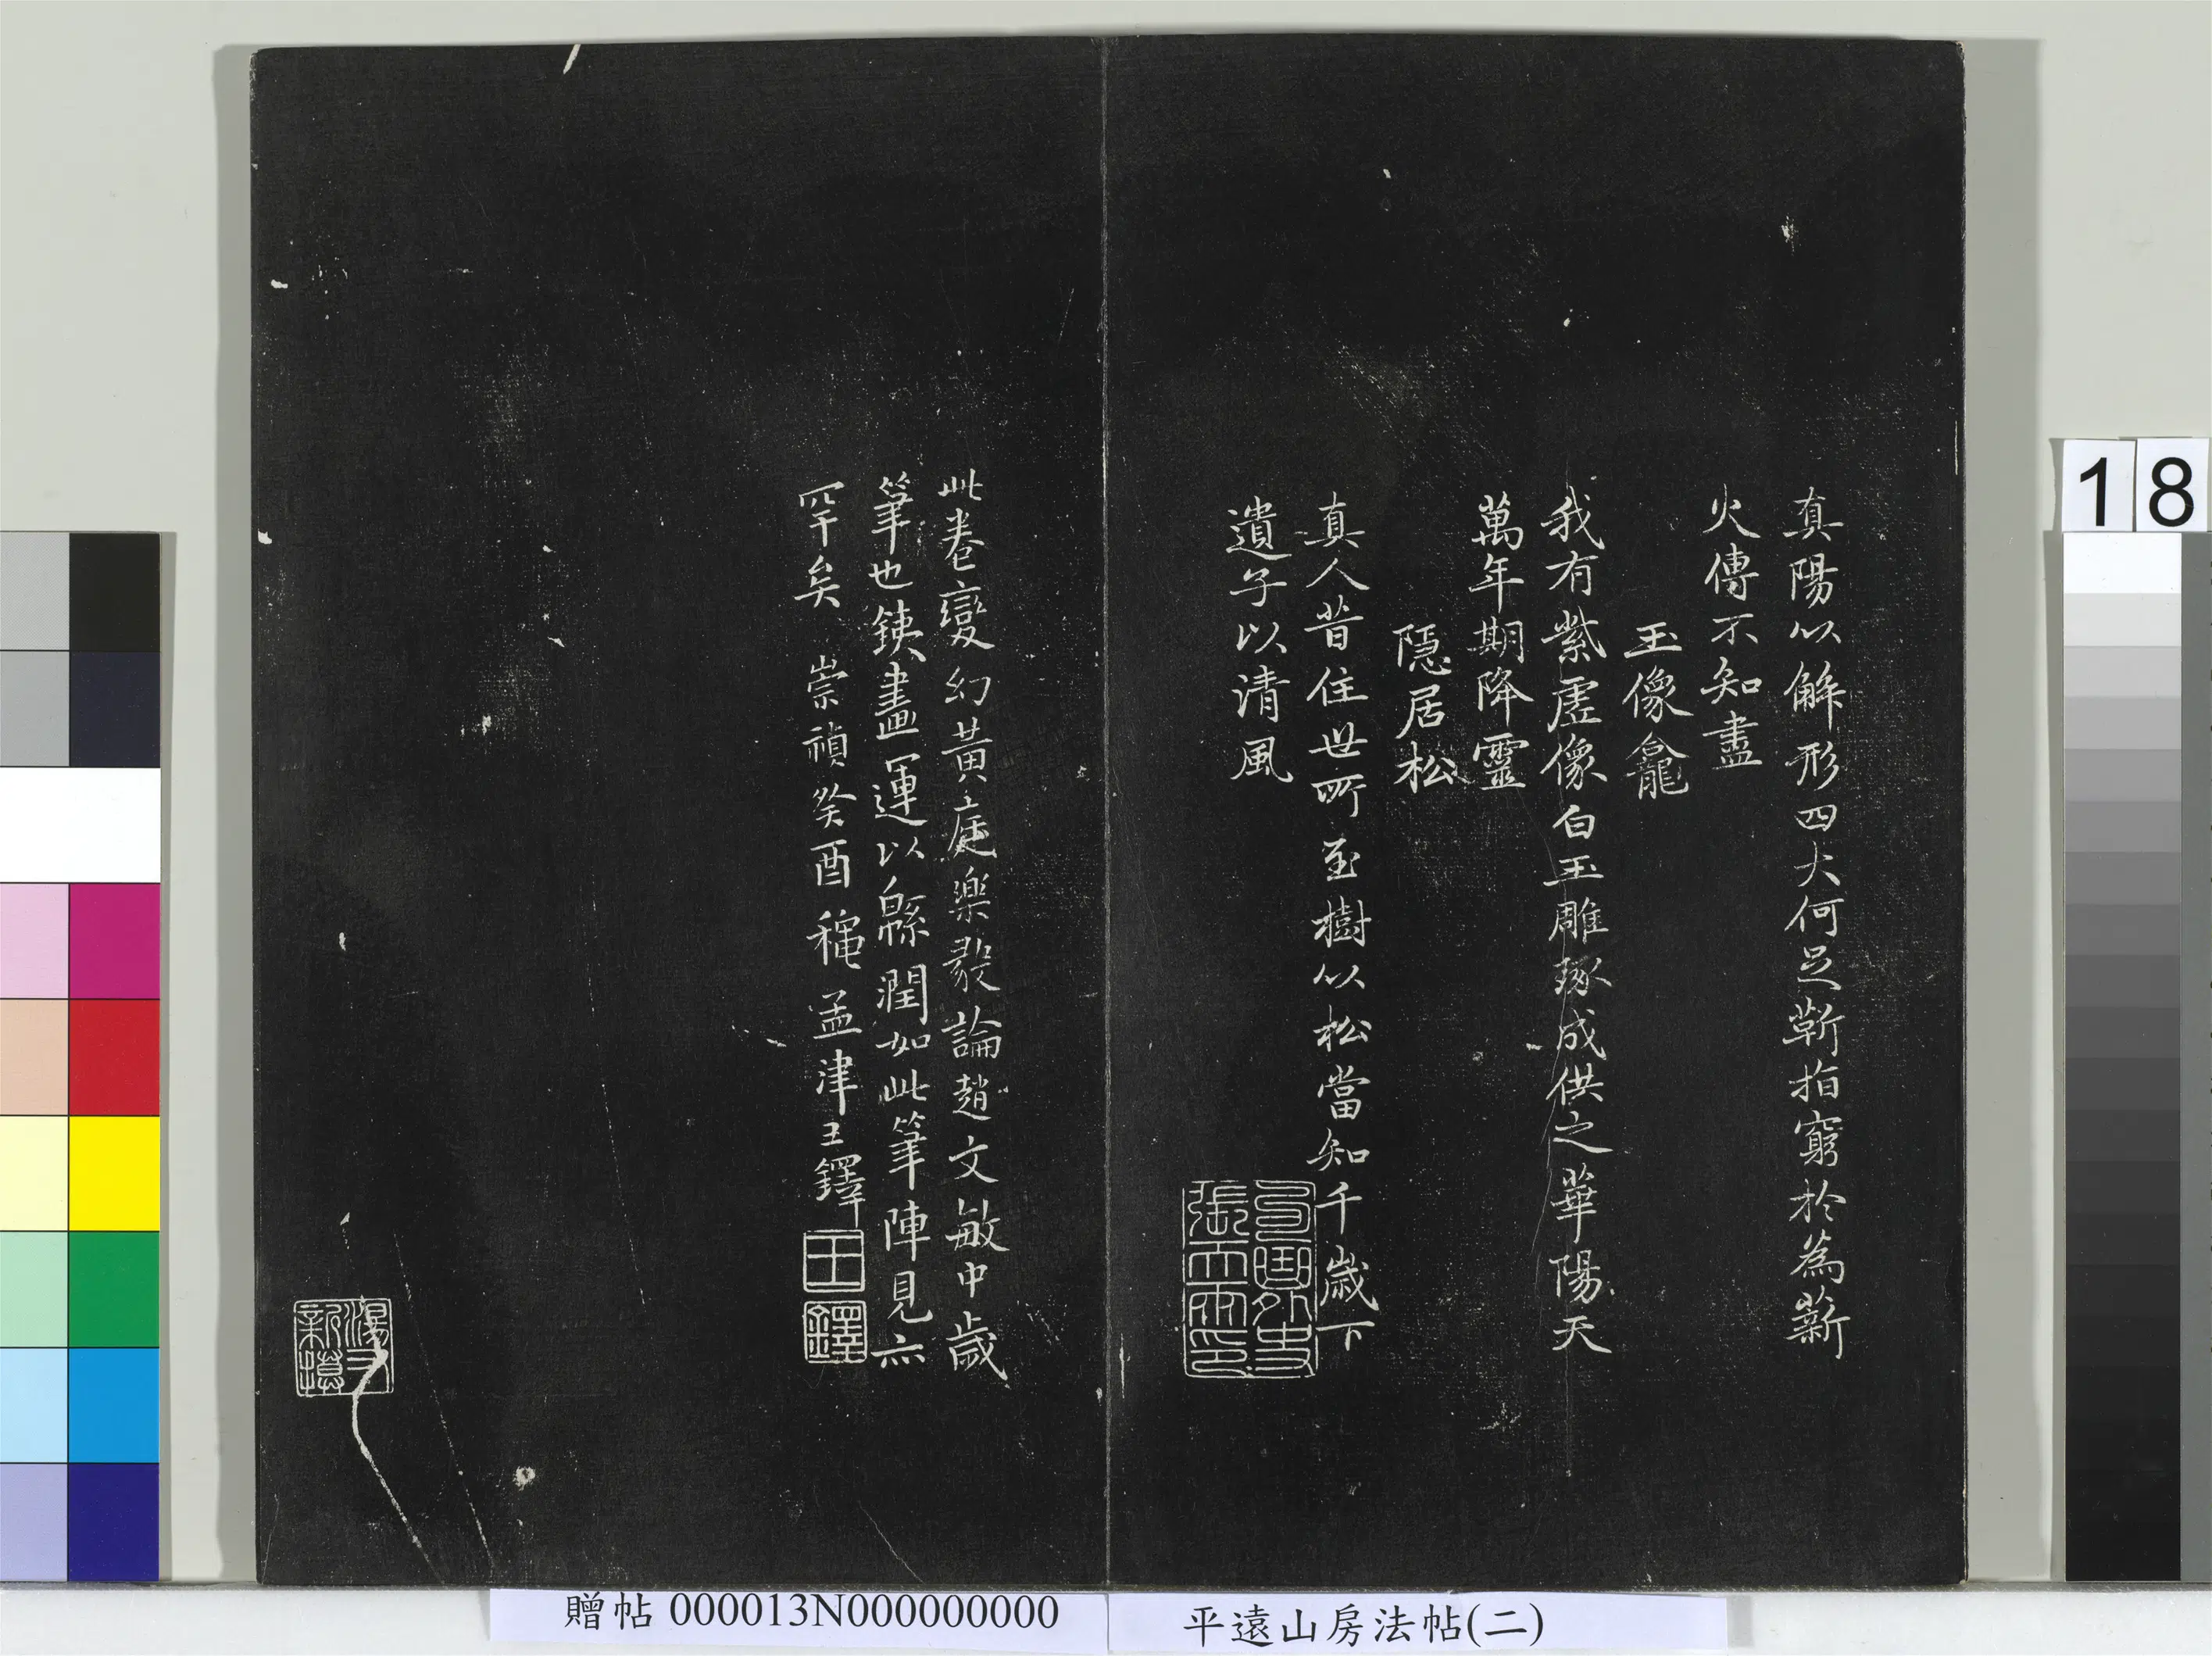 真陽以解形四大何足靳指窮於為薪
火傳不知盡
玉像龕
我有紫虛像白玉雕琢成供之華陽天
萬年期降靈
隱居松
真人昔住世所至樹以松當知千歲下
遺子以清風
句曲外史
張天雨印
此卷變幻黃庭樂毅論趙文敏中歲
筆也銕畫運以緜潤如此筆陣見亦
罕矣 崇禎癸酉龝孟津王鐸
王
鐸
18
贈帖 000013N000000000
平遠山房法帖(二)